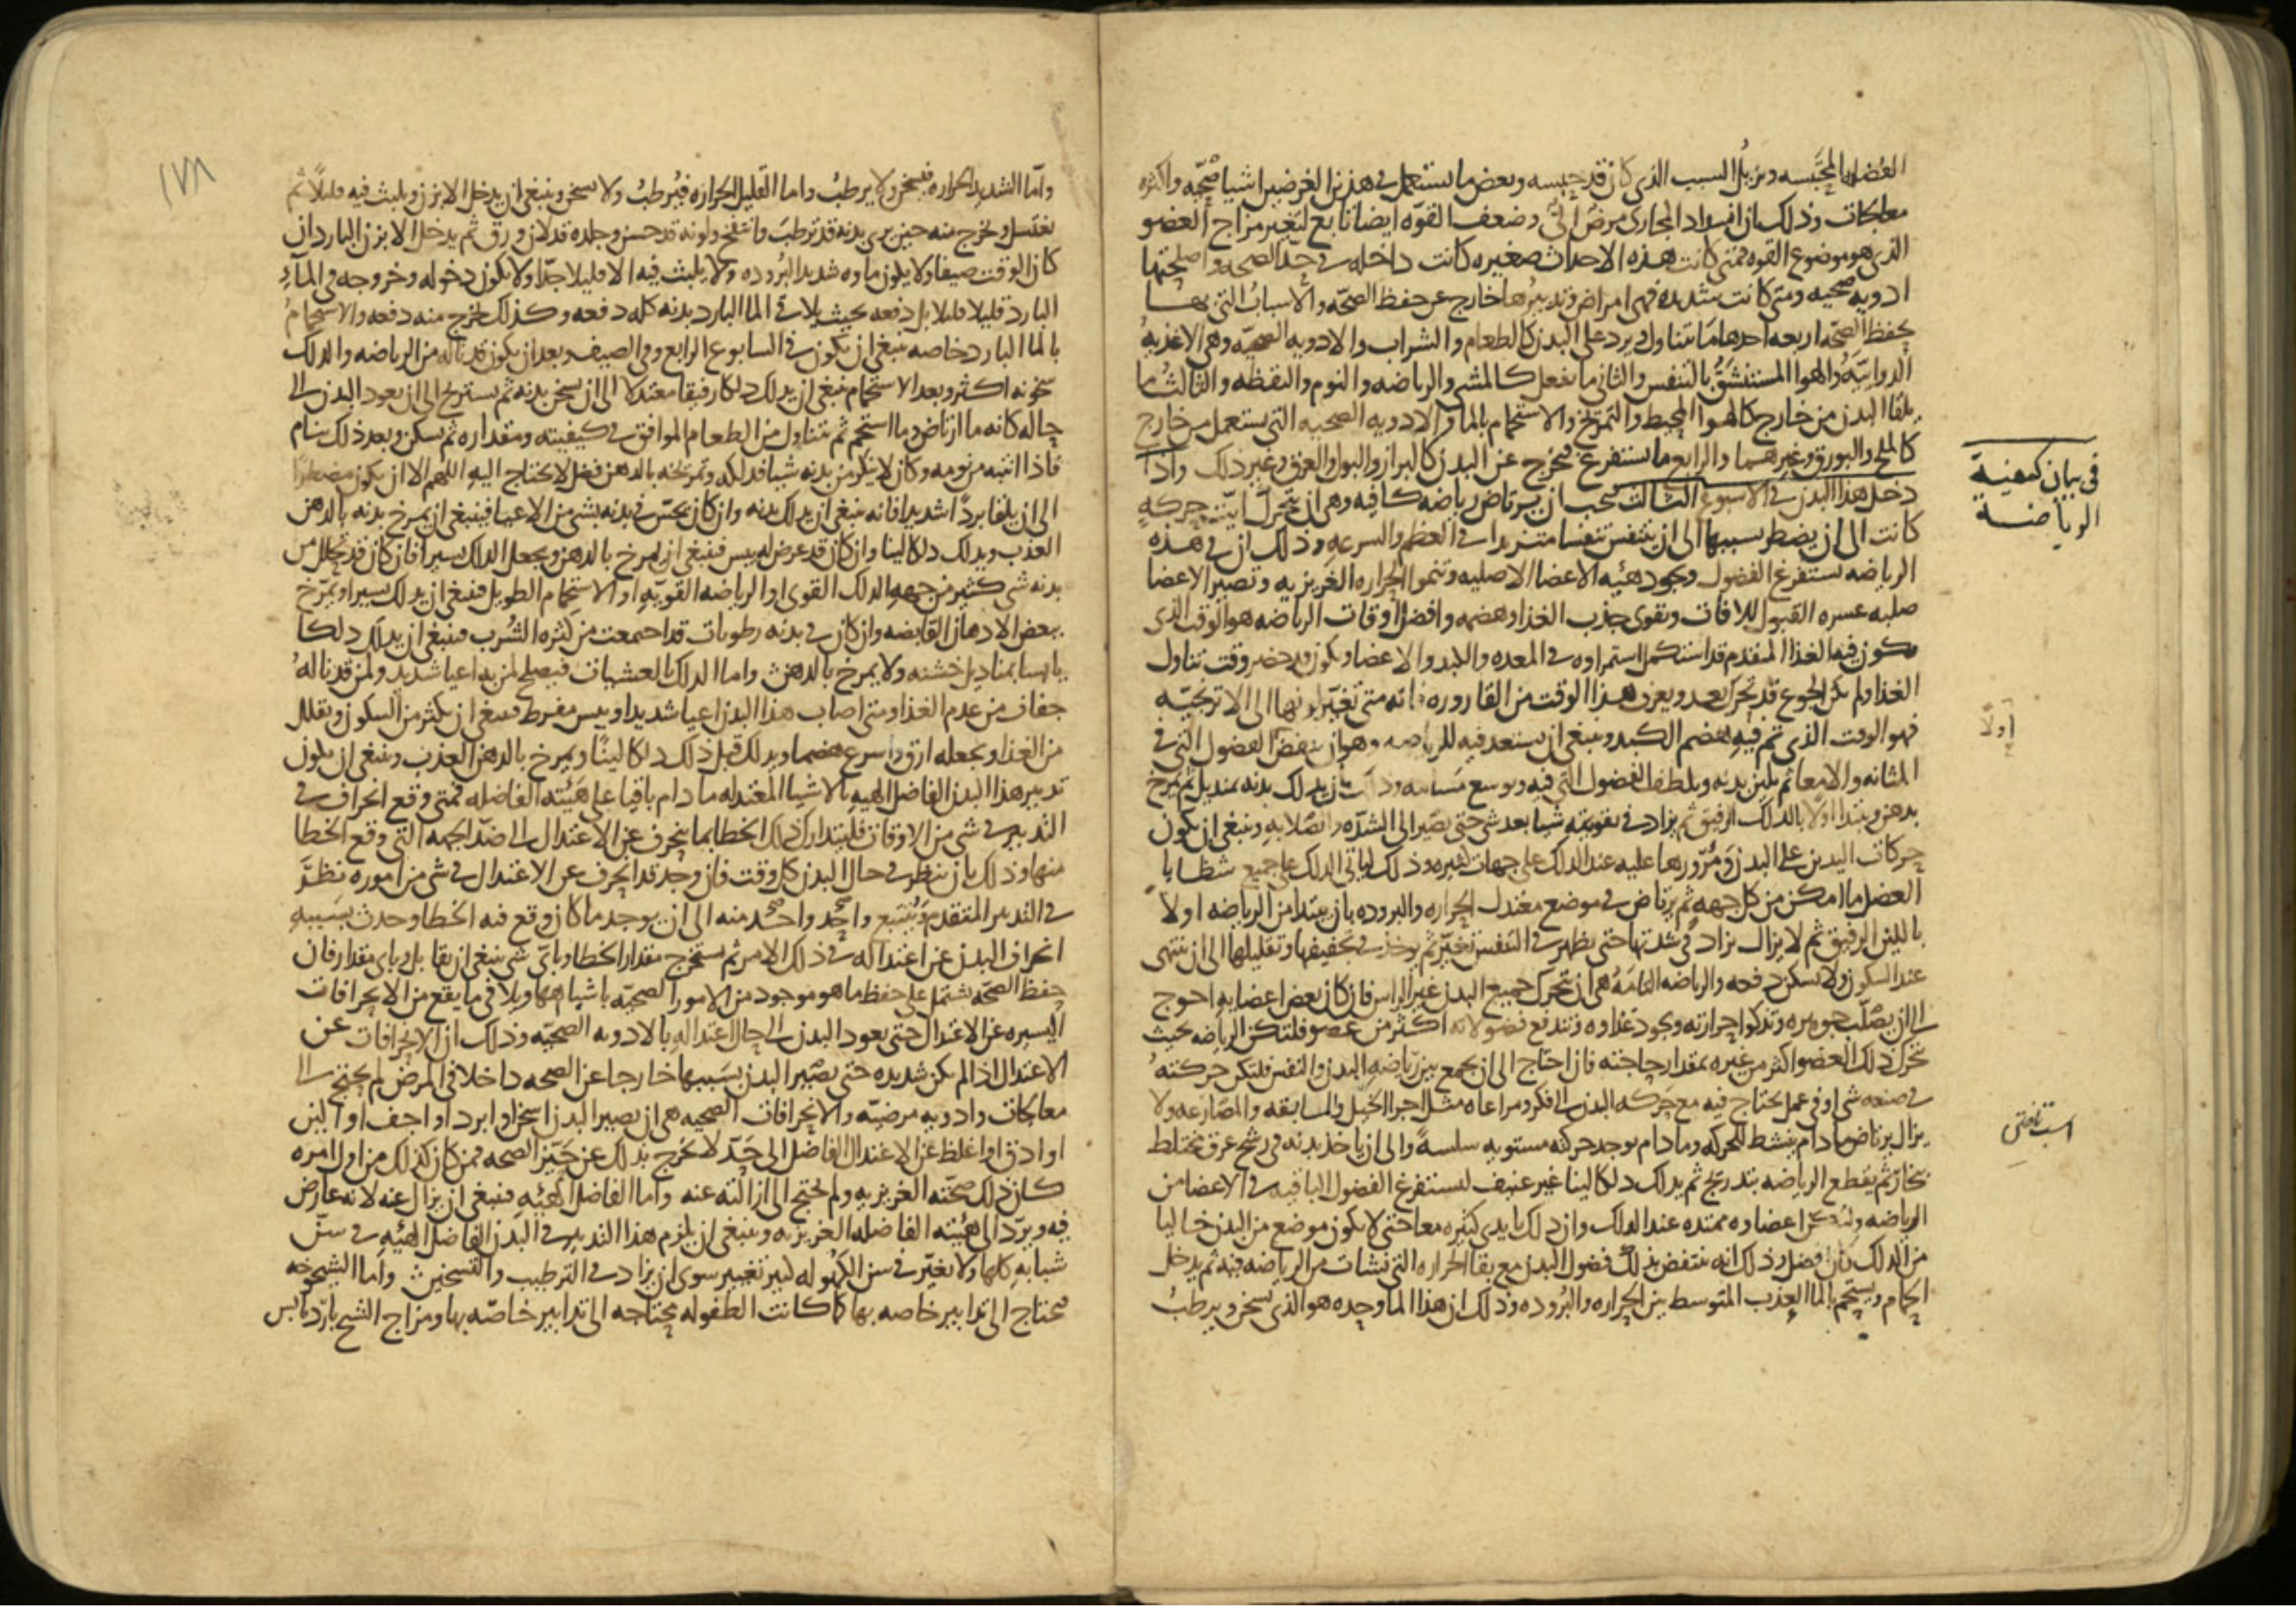 الفضله المحتبسه ويزيل السبب الذى كان قد حبسه وبعض ما يستعمل فى هذين الغرضين اشيا صحيه واكثره
معالجات وذلك ان انسداد المجارى مرض الى وضعف القوه ايضا تابع لتغير مزاج العضو
الذى هو موضوع القوه فمتى كانت هذه الاحداث صغيره كانت داخله فى حد الصحه واصلحتها
ادويه صحيه ومتى كانت شديده فهى امراض وتدبيرها خارج عن حفظ الصحه والاسباب التى بها
يحفظ الصحه اربعه احدها ما يتناول ويرد على البدن كالطعام والشراب والادويه الصحيه وهى الاغذيه
الدوائيه والهوا المستنشق بالتنفس والثانى ما يفعل كالمشى والرياضه والنوم واليقظه والثالث ما
يلقا البدن من خارج كالهوا المحيط والتمريخ والاستحمام بالما والادويه الصحيه التى يستعمل من خارج
كالملح والبورق وغيرهما والرابع ما يستفرغ فيخرج عن البدن كالبراز والبول والعرق وغير ذلك واذا
دخل هذا البدن فى الاسبوع الثالث فيجب ان يرتاض رياضه كافيه وهى ان يتحرك ايت حركه
كانت الى ان يضطر بسببها الى ان يتنفس تنفسا متزيدا فى العظم والسرعه وذلك ان فى هذه
الرياضه تستفرغ الفضول ويجود هئيه الاعضا الاصليه وتنمو الحراره الغريزيه وتصير الاعضا
صلبه عسره القبول للافات وتقوى جذب الغذا وهضمه وافضل اوقات الرياضه هو الوقت الذى
يكون فيه الغذا المتقدم قد استكمل استمراوه فى المعده والكبد والاعضا ويكون قد حضر وقت تناول
الغذا ولم يكن الجوع قد تحرك بعد ويعرف هذا الوقت من القاروره فانه متى تغير لونها الى الاترجيه
فهو الوقت الذى تم فيه هضم الكبد وينبغى ان يستعد فيه للرياضه وهو ان ينفض الفضول التى فى
المثانه والامعا ثم يلين بدنه ويلطف الفضول التى فيه ويوسع مسامه وذلك بان يدلك بدنه بمنديل ثم يمرخ
بدهن ويبتدا اولا بالدلك الرفيق ثم يزاد فى تقويته شيا بعد شى حتى يصير الى الشده والصلابه وينبغى ان يكون
حركات اليدين على البدن ومرورها عليه عند الدلك على جهات كثيره وذلك لياتى الدلك على جميع شظايا
العضل ما امكن من كل جهه ثم يرتاض فى موضع معتدل الحراره والبروده بان يبتدا من الرياضه اولا
باللين الرفيق ثم لا يزال يزاد فى شدتها حتى يظهر فى التنفس تغير ثم يوخذ فى تخفيفها وتقليلها الى ان ينتهى
عند السكون ولا يسكن دفعه والرياضه التامه هى ان تحرك جميع البدن غير الراس فان كان بعض اعضايه احوج
الى ان يصلب جوهره وتذكوا حرارته ويجود غذاوه وتندفع فضولاته اكثر من عضو فلتكن الرياضه بحيث
تحرك ذلك العضو اكثر من غيره بمقدار حاجته فان احتاج الى ان يجمع بين رياضه البدن والنفس فلتكن حركته
فى صنعه شى او فى عمل يحتاج فيه مع حركه البدن الى فكر ومراعاه مثل اجرا الخيل والمسابقه والمصارعه ولا
يزال يرتاض ما دام ينشط للحركه وما دام يوجد حركته مستويه سلسه والى ان ياخذ بدنه فى رشح عرق يختلط
بخار ثم يقطع الرياضه بتدريج ثم يدلك دلكا لينا غير عنيف لتستفرغ الفضول الباقيه فى الاعضا من
الرياضه ولتكن اعضاوه ممتده عند الدلك وان دلك بايدى كثيره معا حتى لا يكون موضع من البدن خاليا
من الدلك كان افضل وذلك انه تنتفض بذلك فضول البدن مع بقا الحراره التى نشات من الرياضه فيه ثم يدخل
الحمام ويستحم بالما العذب المتوسط بين الحراره والبروده وذلك ان هذا الما وحده هو الذى يسخن ويرطب
فى بيان كيفية
الرياضة
اولا
واما الشديد الحراره فيسخن ولا يرطب واما القليل الحراره فيرطب ولا يسخن وينبغى ان يدخل الابزن ويلبث فيه قليلا ثم
يغتسل ويخرج منه حين يرى بدنه قد ترطب وانتفخ ولونه قد حسن وجلده قد لان ورق ثم يدخل الابزن البارد ان
كان الوقت صيفا ولا يكون ماوه شديد البروده ولا يلبث فيه الا قليلا جدا ولا يكون دخوله وخروجه فى الماء
البارد قليلا قليلا بل دفعه بحيث يلاقى الما البارد بدنه كله دفعه وكذلك يخرج منه دفعه والاستحمام
بالما البارد خاصه ينبغى ان يكون فى السابوع الرابع وفى الصيف وبعد ان يكون قد ناله من الرياضه والدلك
سخونه اكثر وبعد الاستحمام ينبغى ان يدلك دلكا رفيقا معتدلا الى ان يسخن بدنه ثم يستريح الى ان يعود البدن الى
حاله كانه ما ارتاض وما استحم ثم يتناول من الطعام الموافق فى كيفيته ومقداره ثم يسكن وبعد ذلك ينام
فاذا انتبه من نومه وكان لا ينكر من بدنه شيا فدلكه وتمريخه بالدهن فضل لا يحتاج اليه اللهم الا ان يكون مضطرا
الى ان يلقا بردا شديدا فانه ينبغى ان يدلك بدنه وان كان يحس فى بدنه بشى من الاعيا فينبغى ان يمرخ بدنه بالدهن
العذب ويدلك دلكا لينا وان كان قد عرض له يبس فينبغى ان يمرخ بالدهن ويجعل الدلك يسيرا فان كان قد تحلل من
بدنه شى كثير من جهه الدلك القوى او الرياضه القويه او الاستحمام الطويل فينبغى ان يدلك يسيرا ويمرخ
ببعض الادهان القابضه وان كان فى بدنه رطوبات قد اجتمعت من كثره الشرب فينبغى ان يدلك دلكا
يابسا بمناديل خشنه ولا يمرخ بالدهن واما الدلك بالعشيات فيصلح لمن به اعيا شديد ولمن قد ناله
جفاف من عدم الغذا ومتى اصاب هذا البدن اعيا شديد او يبس مفرط فينبغى ان يكثر من السكون ويقلل
من الغذا ويجعله ارق واسرع هضما ويدلك قبل ذلك دلكا لينا ويمرخ بالدهن العذب وينبغى ان يكون
تدبير هذا البدن الفاضل الهيه بالاشيا المعتدله ما دام باقيا على هيئته الفاضله فمتى وقع انحراف فى
التدبير فى شى من الاوقات فليتدارك ذلك الخطا بما ينحرف عن الاعتدال الى ضد الجهه التى وقع الخطا
منها وذلك بان ينظر فى حال البدن كل وقت فان وجد قد انحرف عن الاعتدال فى شى من اموره نظر
فى التدبير المتقدم ويتتبع واحد واحد منه الى ان يوجد ما كان وقع فيه الخطا وحدث بسببه
انحراف البدن عن اعتداله فى ذلك الامر ثم يستخرج مقدار الخطا وباى شى ينبغى ان يقابل وباى مقدار فان
حفظ الصحه يشتمل على حفظ ما هو موجود من الامور الصحيه باشباهها ويلافى ما يقع من الانحرافات
اليسيره عن الاعتدال حتى يعود البدن الى حال اعتداله بالادويه الصحيه وذلك ان الانحرافات عن
الاعتدال اذا لم يكن شديده حتى يصير البدن بسببها خارجا عن الصحه داخلا فى المرض لم يحتج الى
معالجات وادويه مرضيه والانحرافات الصحيه هى ان يصير البدن اسخن او ابرد او اجف او الين
او ادق او اغلظ عن الاعتدال الفاضل الى حد لا يخرج بذلك عن حيز الصحه فمن كان كذلك من اول امره
كان ذلك صحته الغريزيه ولم يحتج الى ازالته عنه واما الفاضل الهئيه فينبغى ان يزال عنه لانه عارض
فيه ويرد الى هئيته الفاضله الغريزيه وينبغى ان يلزم هذا التدبير فى البدن الفاضل الهئيه فى سن
شبابه كلها ولا يغير فى سن الكهوله كبير تغيير سوى ان يزاد فى الترطيب والتسخين واما الشيخوخه
فتحتاج الى تدابير خاصه بها كما كانت الطفوله محتاجه الى تدابير خاصه بها ومزاج الشيخ بارد يابس
١٧٨